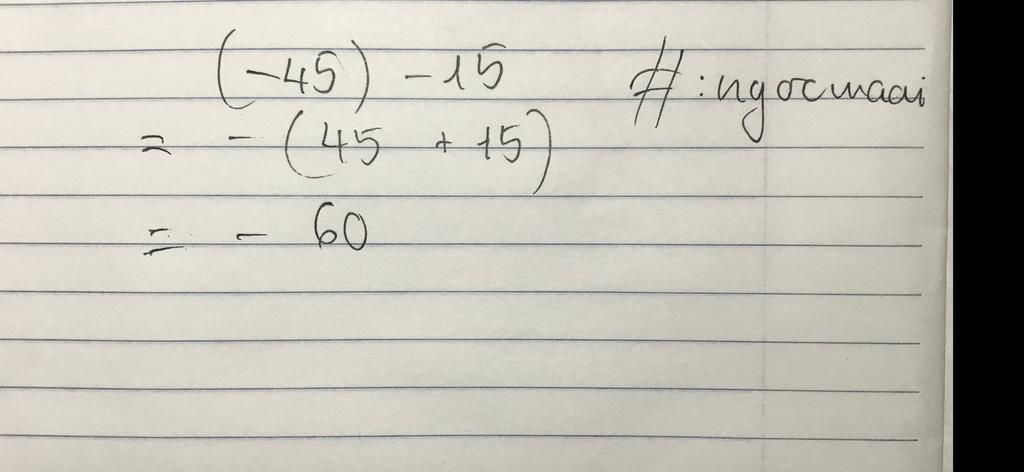 (-45) - 15 #:ngocmaai
= - (45 + 15)
= - 60